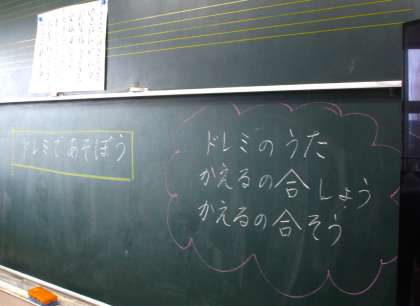 ドレミであそぼう
ドレミのうた
かえるの合しょう
かえるの合そう